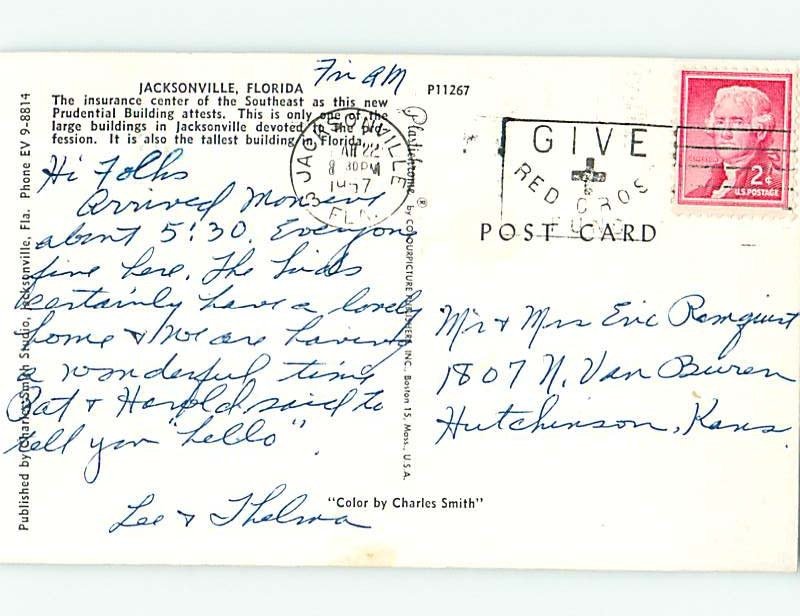 Fri AM
JACKSONVILLE, FLORIDA
P11267
The insurance center of the Southeast as this new
Prudential Building attests. This is only one of the
large buildings in Jacksonville devoted to the pro-
fession. It is also the tallest building in Florida.
Hi Folks
Arrived Mon eve
about 5:30. Everyone
fine here. The kids
certainly have a lovely
home & we are having
a wonderful time
Pat & Harold said to
tell you "hello".
Lee & Thelma
Published by Charles Smith Studio, Jacksonville, Fla. Phone EV 9-8814
Plastichrome ® by COLOURPICTURE PUBLISHERS, INC., Boston 15, Mass., U.S.A.
"Color by Charles Smith"
JACKSONVILLE
MAR 22
8 30 PM
1957
FLA.
3
GIVE
RED CROSS
2¢
U.S. POSTAGE
POST CARD
Mr & Mrs Eric Ramquist
1807 N. Van Buren
Hutchinson, Kans.